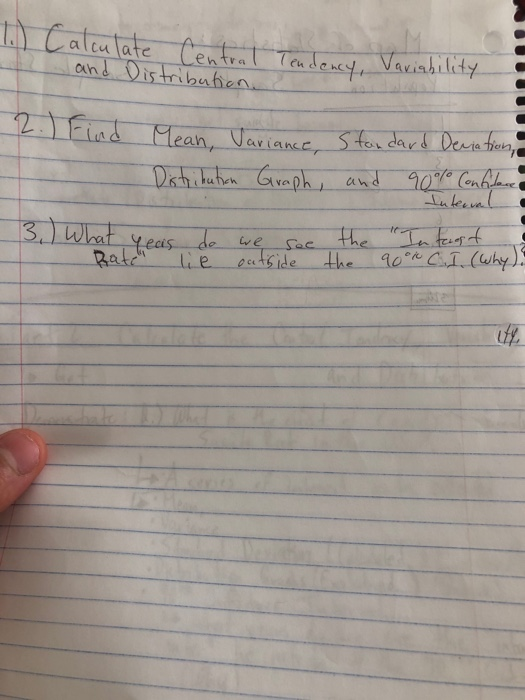 1.) Calculate Central Tendency, Variability
and Distribution.
2.) Find Mean, Variance, Standard Deviation,
Distribution Graph, and 90% Confidence
Interval
3.) What years do we see the "Interest
Rate" lie outside the 90% C.I. (Why)?